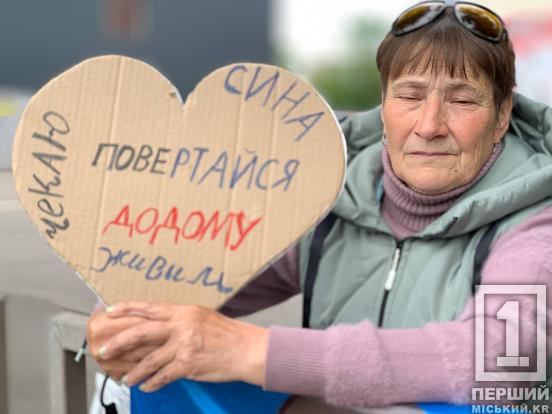 чекаю
сина
повертайся
додому
живим
1
ПЕРШИЙ
МІСЬКИЙ.KR